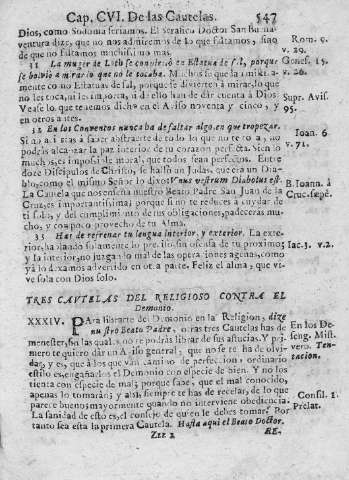 Cap. CVI. De las Cautelas. 547
Dios, como Sodoma seriamos. El serafico Doctor San Buena-
ventura dize, que no nos admiremos de lo que faltamos, sino
de que no faltamos muchissimo mas.
Rom. 9.
v. 29.
31 La muger de Loth se convirtió en Estatua de sal, porque
se bolvió a mirar lo que no le tocaba.
Genes. 19.
v. 26.
no les toca, ni les importa, a el dia han de dar cuenta a Dios
Vease lo que tenemos dicho en el Aviso noventa y cinco, y
en otros antes.
Supr. Avis.
95.
32 En los Conventos nunca ha de faltar algo, en que tropezar.
Si no estas a saber abstraerte de todo lo que no te toca, no
podrás alcanzar la paz interior de tu corazon perfecta. Sien lo
muchos, es impossible moral, que todos sean perfectos. Entre
doze Discipulos de Christo, se halló un Judas, que era un Dia-
blo, como el mismo Señor lo dixo: Unus vestrum Diabolus est.
Ioan. 6
v. 71.
La Cautela que nos enseña nuestro Beato Padre San Juan de la
Cruz, es importantissima; porque si no te reduces à cuydar de
ti solo, y del cumplimiento de sus obligaciones, padecerás mu-
cho, y con poco provecho de tu Alma.
B. Ioann. à
Cruc. sæpè.
33 Has de refrenar tu lengua interior, y exterior. La exte-
rior, hablando solamente lo preciso, sin ofensa de tu proximo;
y la interior, no juzgando mal de las operaciones agenas, como
yà lo dexamos advertido en otra parte. Feliz el alma, que vi-
ve sola con Dios solo.
Iac. 3. v. 2.
TRES CAUTELAS DEL RELIGIOSO CONTRA EL
Demonio.
XXXIV. PAra librarte del Demonio en la Religion, dize
nuestro Beato Padre, otras tres Cautelas has de
menester, sin las quales no te podrás librar de sus astucias. Y pri-
mero te quiero dar un Aviso general, que no se te ha de olvi-
dar, y es, que à los que van camino de perfeccion, ordinario
estilo es, engañarlos el Demonio con especie de bien. Y no los
tienta con especie de mal; porque sabe, que el mal conocido,
apenas lo tomarán; y assi siempre te has de recelar, de lo que
parece bueno, mayormente quando no interviene obediencia.
La sanidad de esto es, el consejo de quien le debes tomar. Por
tanto sea esta la primera Cautela. Hasta aqui el Beato Doctor.
En los De-
seng. Mist.
verv. Ten-
tacion.
Consil. 1.
Prelat.
Zzz 2 RE-